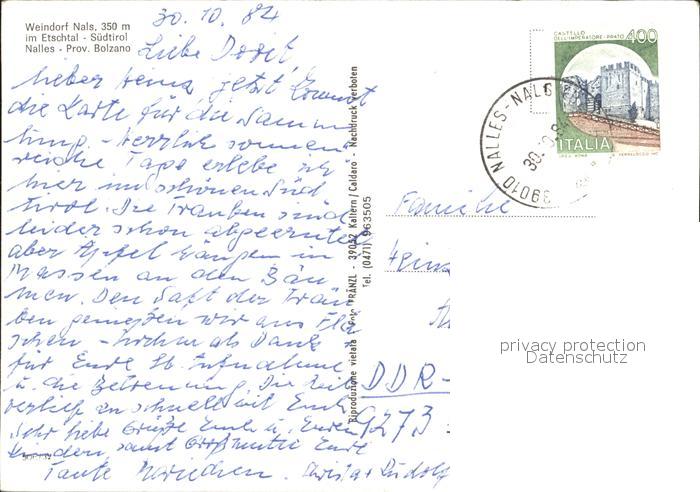 Weindorf Nals, 350 m
im Etschtal - Südtirol
Nalles - Prov. Bolzano
30. 10. 84
Liebe Dorit,
lieber Heinz jetzt kommt
die Karte für die Samm
lung. - Herrlich sonnen
reiche Tage erlebe ich
hier im schönen Süd
tirol. Die Trauben sind
leider schon abgeerntet
aber Äpfel hängen in
Massen an den Bäu
men. Den Saft der Trau
ben genießen wir aus Fla
schen - Nochmals Dank
für Eure lb. Aufnahme
u. die Betreuung. Die Zeit
verlief zu schnell mit Euch
Sehr liebe Grüße Euch u. Euren
Kindern, samt Großmutti Eure
Tante Mariechen. Christa + Rudolf
Riproduzione vietata - Foto FRÄNZL - 39052 Kaltern/Caldaro - Nachdruck verboten
Tel. (0471) 963505
CASTELLO
DELL'IMPERATORE - PRATO
400
ITALIA
39010 NALLES - NALS
30.
Familie
Heinz
DDR-
9273
privacy protection
Datenschutz